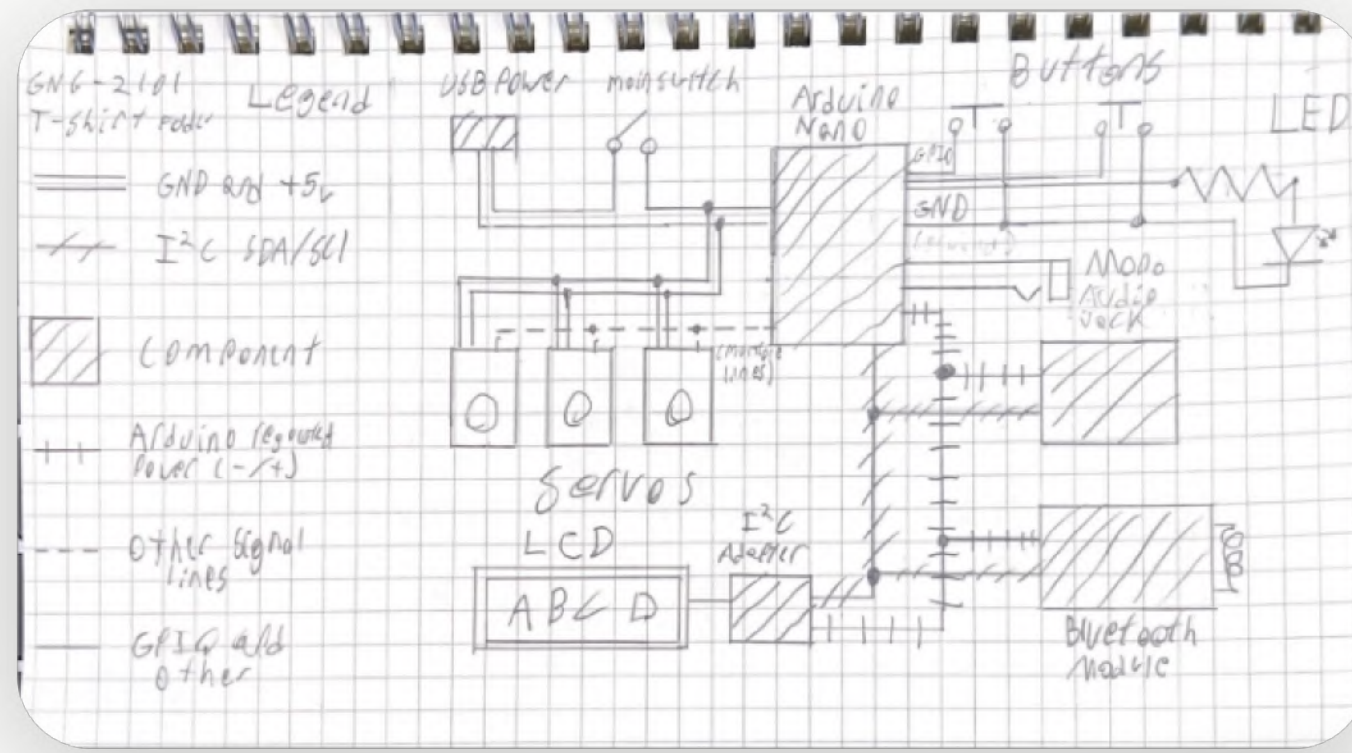 GNG-2101
T-Shirt
Legend
GND and +5v
I²C SDA/SCl
Component
Arduino
Power (-/+)
Other Signal
lines
GPIO and
other
USB Power
main switch
Arduino
Nano
Buttons
LED
GPIO
GND
Mono
Audio
Jack
(Multiple
lines)
Servos
LCD
ABCD
I²C
Adapter
Bluetooth
Module